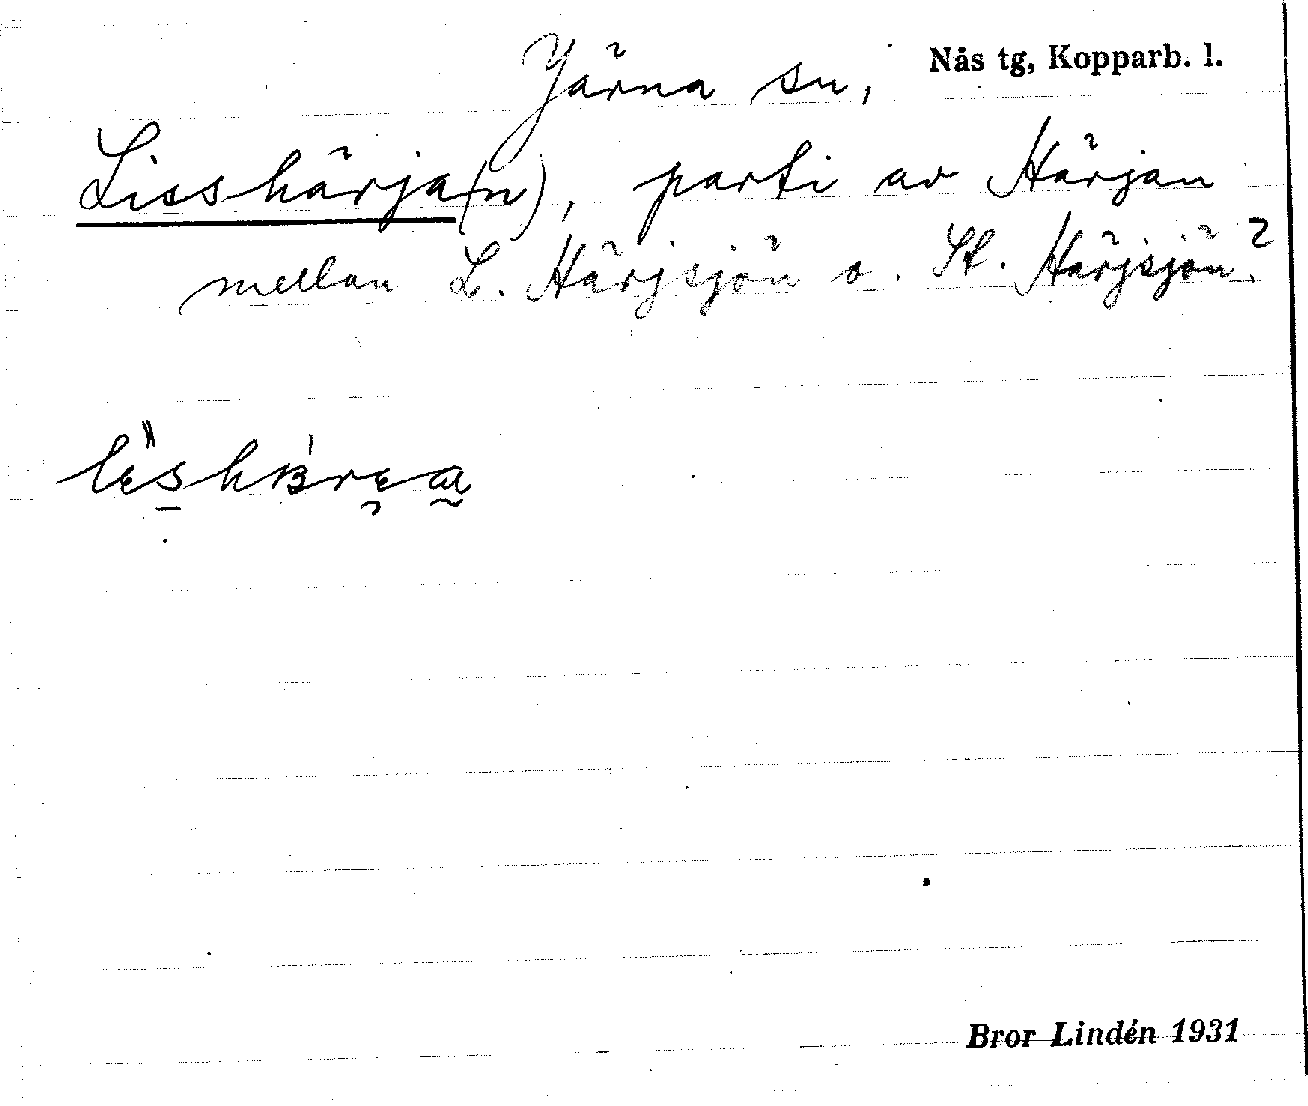 Järna sn, Nås tg, Kopparb. l.
Lisshärja(n), parti av Härjan
mellan L. Härjsjön o. St. Härjsjön?
Bror Lindén 1931